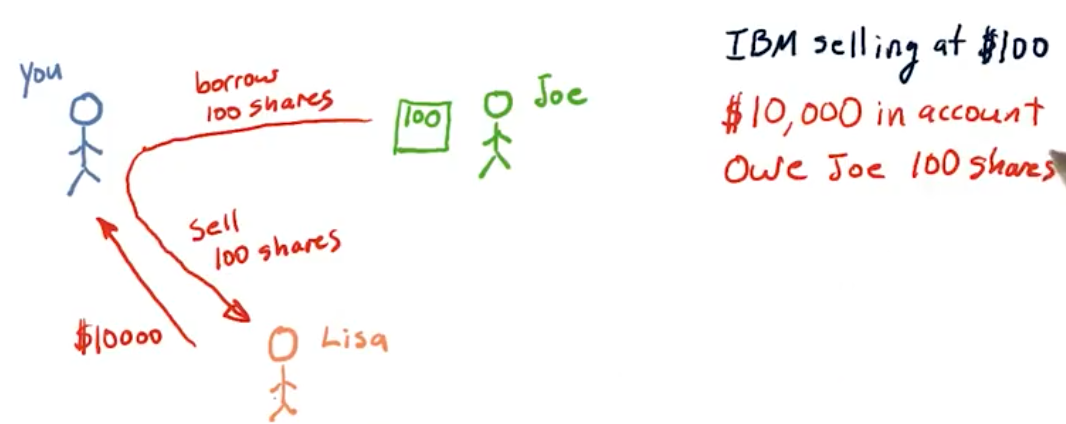 You
borrows
100 shares
100
Joe
Sell
100 shares
$10000
Lisa
IBM selling at $100
$10,000 in account
Owe Joe 100 shares